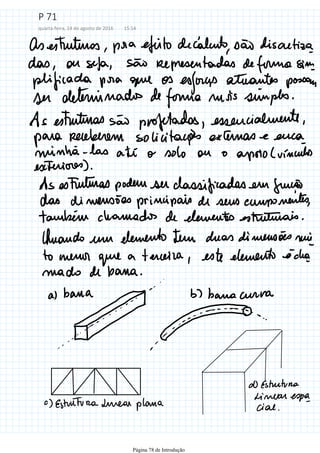 P 71
quarta-feira, 13 de agosto de 2014 15:14
As estruturas, para efeito de cálculo, são discretiza
das, ou seja, são representadas de forma sim
plificada para que os esforços atuantes possam
ser determinados de forma mais simples.
As estruturas são projetadas, essencialmente,
para receberem solicitações externas e enca
minhá-las até o solo ou o apoio (vínculos
exteriores).
As estruturas podem ser classificadas em função
das dimensões principais de seus componentes,
também chamados de elementos estruturais.
Quando um elemento tem duas dimensões mui
to menor que a terceira, este elemento é cha
mado de barra.
a) barra
b) barra curva
c) Estrutura linear plana
d) Estrutura
linear espa
cial.
Página 78 de Introdução